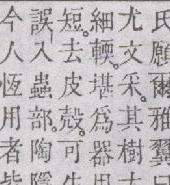 氏願爾雅翼曰
尤文采。其樹
細輭。堪爲器用
短。去皮殼。可生
誤入蟲部。陶隱
今人恆用者皆